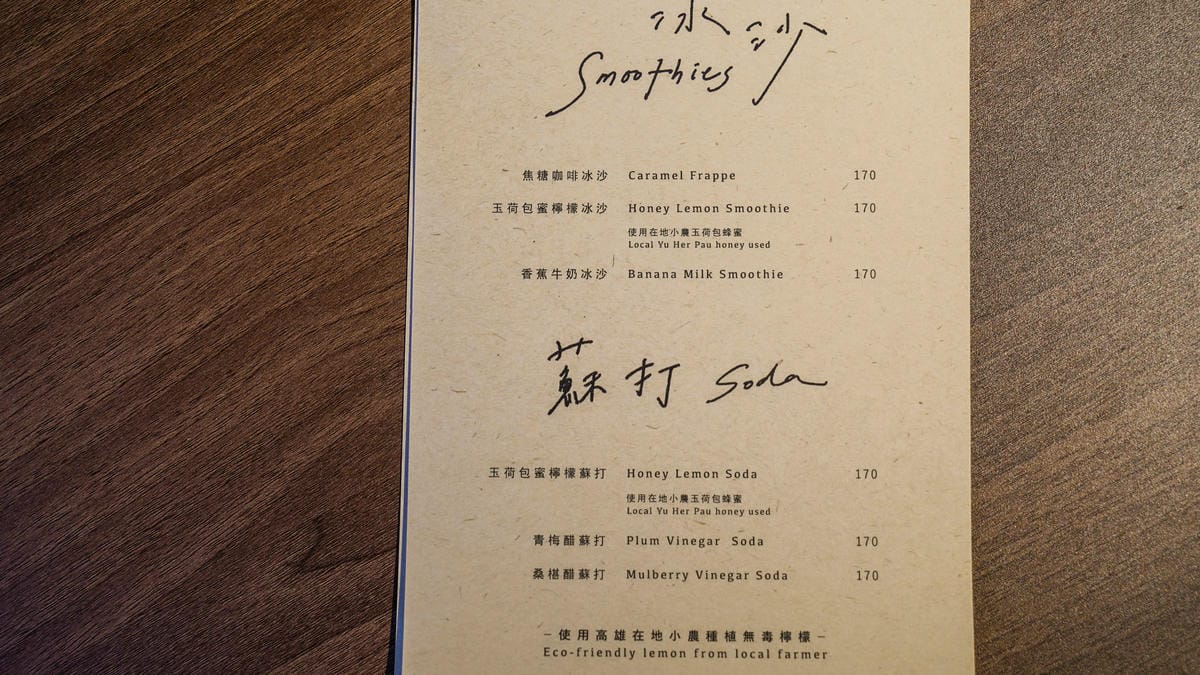 冰沙
Smoothies
焦糖咖啡冰沙 Caramel Frappe 170
玉荷包蜜檸檬冰沙 Honey Lemon Smoothie 170
使用在地小農玉荷包蜂蜜
Local Yu Her Pau honey used
香蕉牛奶冰沙 Banana Milk Smoothie 170
蘇打 Soda
玉荷包蜜檸檬蘇打 Honey Lemon Soda 170
使用在地小農玉荷包蜂蜜
Local Yu Her Pau honey used
青梅醋蘇打 Plum Vinegar Soda 170
桑椹醋蘇打 Mulberry Vinegar Soda 170
－使用高雄在地小農種植無毒檸檬－
Eco-friendly lemon from local farmer